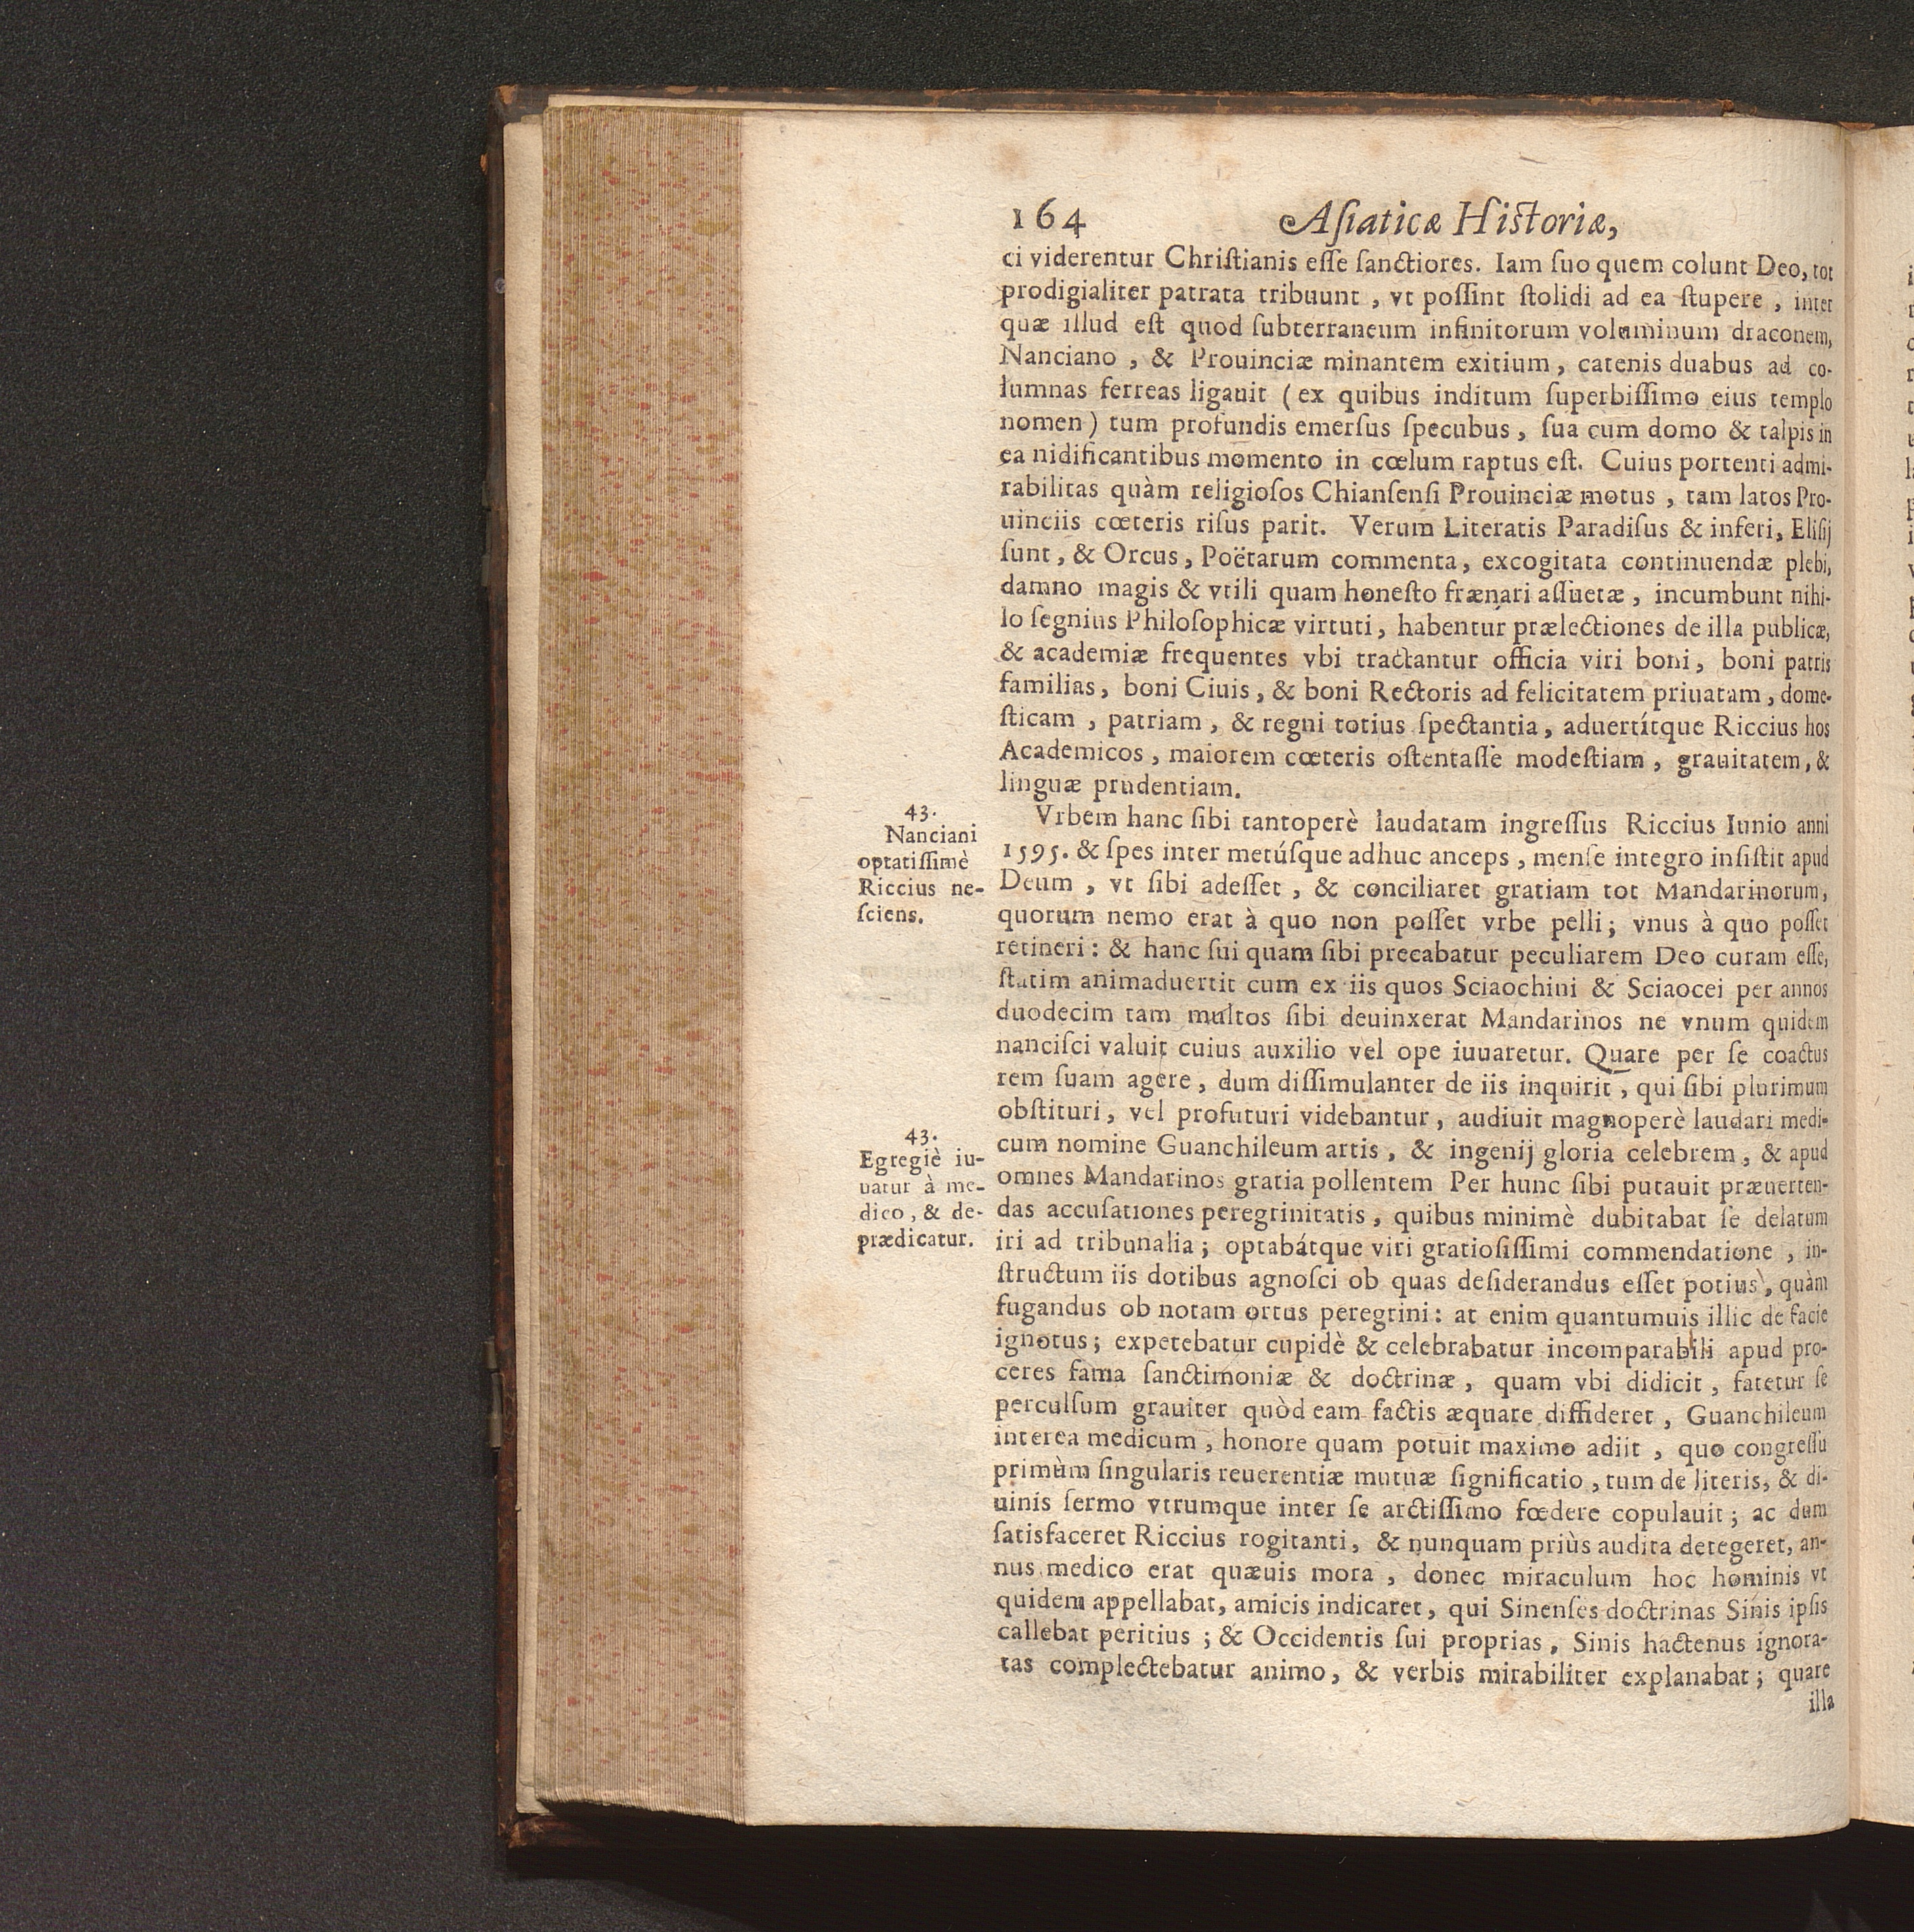 164 Aſiaticæ Hiſtoriæ,
ci viderentur Chriſtianis eſſe ſanctiores. Iam ſuo quem colunt Deo, tot
prodigialiter patrata tribuunt , vt poſſint ſtolidi ad ea ſtupere , inter
quæ illud eſt quod ſubterraneum infinitorum voluminum draconem,
Nanciano , & Prouinciæ minantem exitium , catenis duabus ad co-
lumnas ferreas ligauit ( ex quibus inditum ſuperbiſſimo eius templo
nomen ) tum profundis emerſus ſpecubus , ſua cum domo & talpis in
ea nidificantibus momento in cœlum raptus eſt. Cuius portenti admi-
rabilitas quàm religioſos Chianſenſi Prouinciæ motus , tam latos Pro-
uinciis cœteris riſus parit. Verum Literatis Paradiſus & inferi, Eliſij
ſunt , & Orcus , Poëtarum commenta, excogitata continuendæ plebi,
damno magis & vtili quam honeſto frænari aſſuetæ , incumbunt nihi-
lo ſegnius Philoſophicæ virtuti , habentur prælectiones de illa publicæ,
& academiæ frequentes vbi tractantur officia viri boni, boni patris
familias, boni Ciuis , & boni Rectoris ad felicitatem priuatam , dome-
ſticam , patriam , & regni totius ſpectantia, aduertítque Riccius hos
Academicos , maiorem cœteris oſtentaſſe modeſtiam , grauitatem, &
linguæ prudentiam.
43.
Nanciani
optatiſſimè
Riccius ne-
ſciens.
Vrbem hanc ſibi tantoperè laudatam ingreſſus Riccius Iunio anni
1595. & ſpes inter metúſque adhuc anceps , menſe integro inſiſtit apud
Deum , vt ſibi adeſſet , & conciliaret gratiam tot Mandarinorum,
quorum nemo erat à quo non poſſet vrbe pelli ; vnus à quo poſſet
retineri : & hanc ſui quam ſibi precabatur peculiarem Deo curam eſſe,
ſtatim animaduertit cum ex iis quos Sciaochini & Sciaocei per annos
duodecim tam multos ſibi deuinxerat Mandarinos ne vnum quidem
nanciſci valuit cuius auxilio vel ope iuuaretur. Quare per ſe coactus
rem ſuam agere , dum diſſimulanter de iis inquirit , qui ſibi plurimum
obſtituri, vel profuturi videbantur, audiuit magnoperè laudari medi-
43.
Egregiè iu-
uatur à me-
dico, & de-
prædicatur.
cum nomine Guanchileum artis , & ingenij gloria celebrem, & apud
omnes Mandarinos gratia pollentem Per hunc ſibi putauit præuerten-
das accuſationes peregrinitatis , quibus minimè dubitabat ſe delatum
iri ad tribunalia ; optabátque viri gratioſiſſimi commendatione , in-
ſtructum iis dotibus agnoſci ob quas deſiderandus eſſet potius , quàm
fugandus ob notam ortus peregrini : at enim quantumuis illic de facie
ignotus ; expetebatur cupidè & celebrabatur incomparabili apud pro-
ceres fama ſanctimoniæ & doctrinæ , quam vbi didicit , fatetur ſe
perculſum grauiter quòd eam factis æquare diffideret , Guanchileum
interea medicum , honore quam potuit maximo adiit , quo congreſſu
primùm ſingularis reuerentiæ mutuæ ſignificatio , tum de literis, & di-
uinis ſermo vtrumque inter ſe arctiſſimo fœdere copulauit ; ac dum
ſatisfaceret Riccius rogitanti, & nunquam priùs audita detegeret, an-
nus medico erat quæuis mora , donec miraculum hoc hominis vt
quidem appellabat, amicis indicaret, qui Sinenſes doctrinas Sinis ipſis
callebat peritius ; & Occidentis ſui proprias , Sinis hactenus ignora-
tas complectebatur animo, & verbis mirabiliter explanabat ; quare
illa